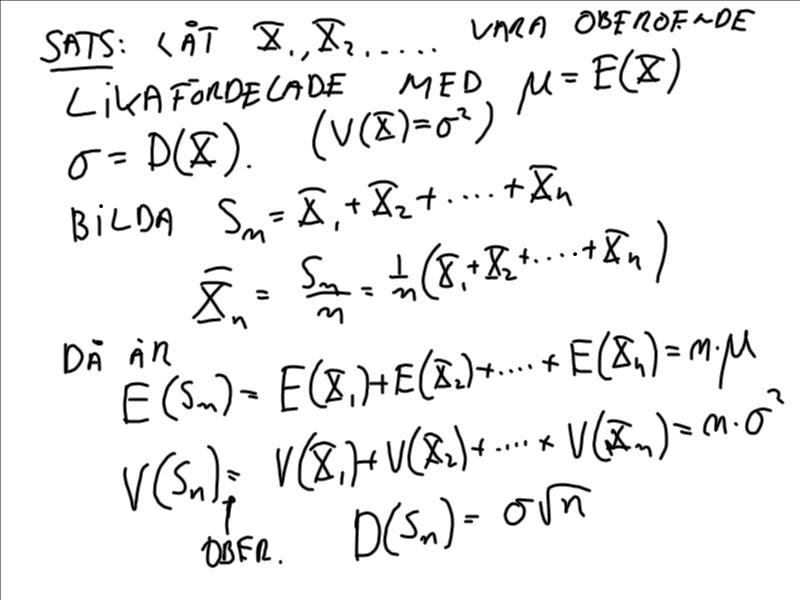 SATS: LÅT X₁, X₂, .... VARA OBEROENDE
LIKAFÖRDELADE MED μ = E(X)
σ = D(X). (V(X)=σ²)
BILDA Sₙ = X₁ + X₂ + .... + Xₙ
X̄ₙ = Sₙ/n = 1/n (X₁+X₂+....+Xₙ)
DÅ ÄR
E(Sₙ) = E(X₁)+E(X₂)+....+E(Xₙ)=n·μ
V(Sₙ) = V(X₁)+V(X₂)+....+V(Xₙ)=n·σ²
↑
OBER. D(Sₙ)= σ√n